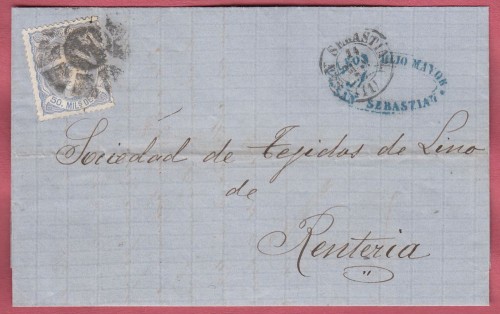 50 MILS DE
Sn SEBASTIAN
14
(11)
JULIO MAYOR
SEBASTIAN
Sociedad de Tejidos de Lino
de
Renteria